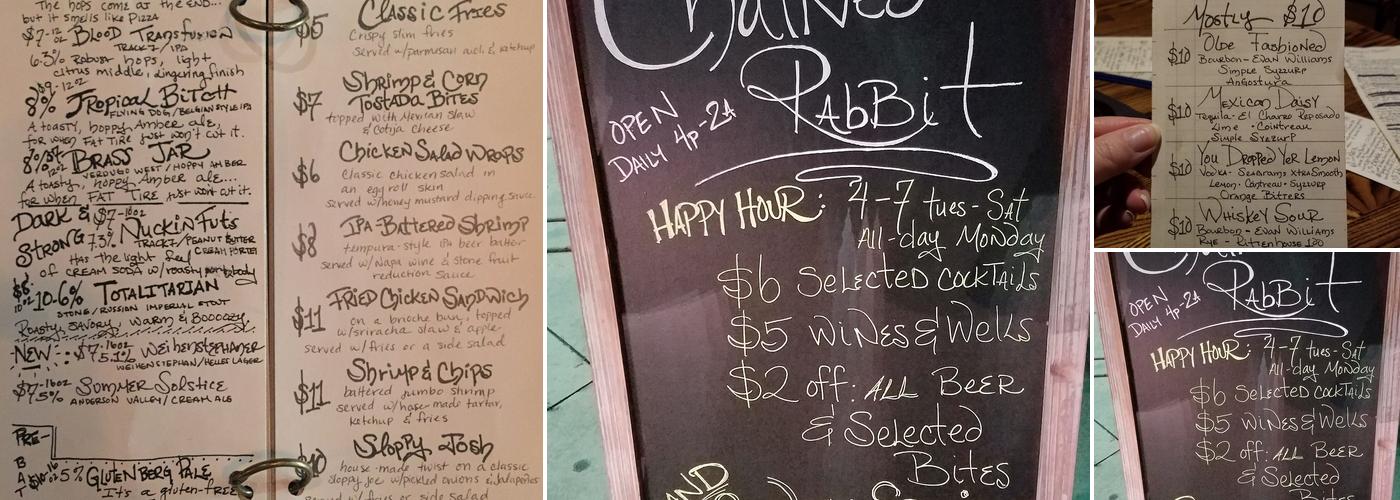 The hops come at the end...
but it smells like Pizza
$7-12oz Blood Transfusion
Track 7/IPA
6.3% Robust hops, light
citrus middle, lingering finish
12oz
8% Tropical Bitch
Flying Dog/Belgian Style IPA
A toasty, hoppy Amber ale,
for when Fat Tire just won't cut it.
8% Brass Jar
12oz
Verdugo West/Hoppy Amber
A toasty, hoppy Amber ale...
for when Fat Tire just won't cut it.
Dark &
Strong
$7-16oz
7.3% Nuckin Futs
Track 7/Peanut Butter
Cream Porter
Has the light feel
of cream soda w/roasty
10.6% Totalitarian
Stone/Russian Imperial Stout
Roasty, savory, warm & Boooozy
New: $7-16oz
5.1% Weihenstephaner
Weihenstephan/Helles Lager
$7-16oz
5% Summer Solstice
Anderson Valley/Cream Ale
Pre-
5% Glutenberg Pale
It's a gluten-free
$5 Classic Fries
Crispy slim fries
served w/parmesan aioli & ketchup
$7 Shrimp & Corn
Tostada Bites
topped with Mexican slaw
& cotija cheese
$6 Chicken Salad Wraps
Classic chicken salad in
an egg roll skin
served w/honey mustard dipping sauce
$8 IPA-Battered Shrimp
tempura-style IPA beer batter
served w/Napa wine & stone fruit
reduction sauce
$11 Fried Chicken Sandwich
on a brioche bun, topped
w/sriracha slaw & apple
served w/fries or a side salad
$11 Shrimp & Chips
battered jumbo shrimp
served w/house-made tartar,
ketchup & fries
$10 Sloppy Josh
house-made twist on a classic
sloppy joe w/pickled onions & jalapeños
served w/fries or side salad
Chained
Rabbit
Open
Daily 4p-2a
Happy Hour: 4-7 tues-Sat
All-day Monday
$6 Selected Cocktails
$5 Wines & Wells
$2 off: All Beer
& Selected
Bites
AND
Mostly $10
$10 Olde Fashioned
Bourbon-Evan Williams
Simple Syzzurp
Angostura
$10 Mexican Daisy
Tequila-El Charro Reposado
Lime · Cointreau
Simple Syzzurp
$10 You Dropped Yer Lemon
Vodka-Seagrams Xtra Smooth
Lemon · Cointreau · Syzzurp
Orange Bitters
$10 Whiskey Sour
Bourbon-Evan Williams
Rye-Rittenhouse 100
Rabbit
Open
Daily 4p-2a
Happy Hour: 4-7 tues-Sat
All-day Monday
$6 Selected Cocktails
$5 Wines & Wells
$2 off: All Beer
& Selected
Bites